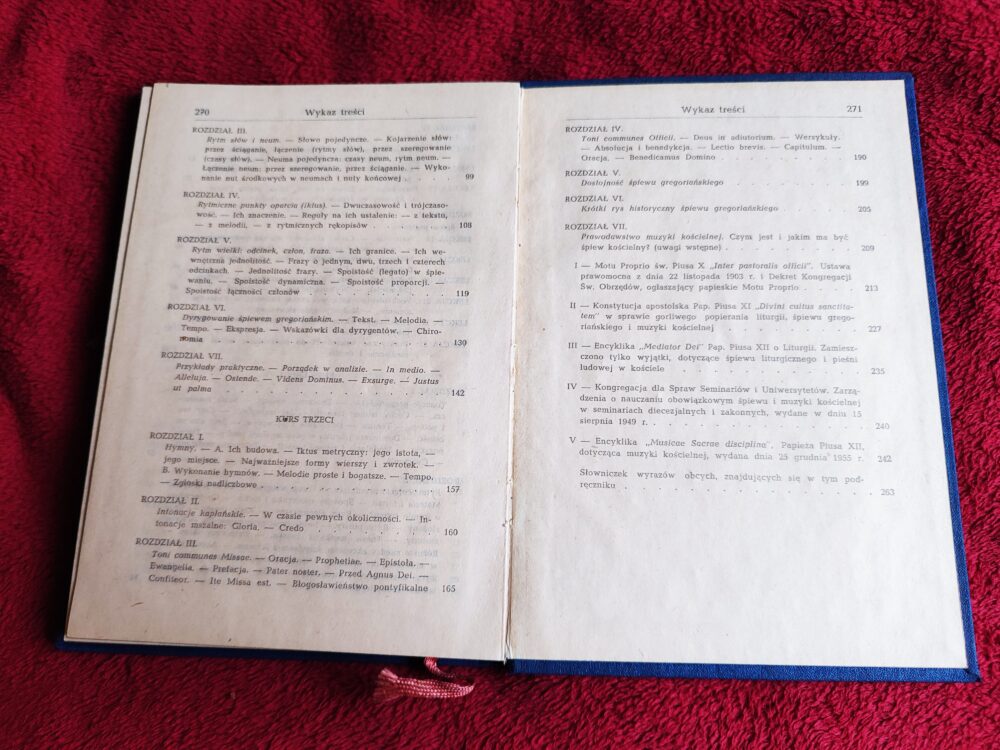 270 Wykaz treści
ROZDZIAŁ III.
Rytm słów i neum. — Słowo pojedyncze. — Kojarzenie słów:
przez ściąganie, łączenie (rytmy słów), przez szeregowanie
(czasy słów). — Neuma pojedyncza: czasy neum, rytm neum. —
Łączenie neum: przez szeregowanie, przez ściąganie. — Wyko-
nanie nut środkowych w neumach i nuty końcowej . . . . 99
ROZDZIAŁ IV.
Rytmiczne punkty oparcia (iktus). — Dwuczasowość i trójczaso-
wość. — Ich znaczenie. — Reguły na ich ustalenie: — z tekstu,
— z melodii, — z rytmicznych rękopisów . . . . . . 108
ROZDZIAŁ V.
Rytm wielki: odcinek, człon, fraza. — Ich granice. — Ich we-
wnętrzna jednolitość. — Frazy o jednym, dwu, trzech i czterech
odcinkach. — Jednolitość frazy. — Spoistość (legato) w śpie-
waniu. — Spoistość dynamiczna. — Spoistość proporcji. —
Spoistość łączności członów . . . . . . . . . 119
ROZDZIAŁ VI.
Dyrygowanie śpiewem gregoriańskim. — Tekst. — Melodia. —
Tempo. — Ekspresja. — Wskazówki dla dyrygentów. — Chiro-
nomia . . . . . . . . . . . . . 130
ROZDZIAŁ VII.
Przykłady praktyczne. — Porządek w analizie. — In medio. —
Alleluja. — Ostende. — Videns Dominus. — Exsurge. — Justus
ut palma . . . . . . . . . . . . 142
KURS TRZECI
ROZDZIAŁ I.
Hymny. — A. Ich budowa. — Iktus metryczny: jego istota, —
jego miejsce. — Najważniejsze formy wierszy i zwrotek. —
B. Wykonanie hymnów. — Melodie proste i bogatsze. — Tempo.
— Zgłoski nadliczbowe . . . . . . . . . . 157
ROZDZIAŁ II.
Intonacje kapłańskie. — W czasie pewnych okoliczności. — In-
tonacje mszalne: Gloria. — Credo . . . . . . . 160
ROZDZIAŁ III.
Toni communes Missae. — Oracja. — Prophetiae. — Epistoła. —
Ewangelia. — Prefacja. — Pater noster. — Przed Agnus Dei. —
Confiteor. — Ite Missa est. — Błogosławieństwo pontyfikalne 165
Wykaz treści 271
ROZDZIAŁ IV.
Toni communes Officii. — Deus in adiutorium. — Wersykuły.
— Absolucja i benedykcja. — Lectio brevis. — Capitulum. —
Oracja. — Benedicamus Domino . . . . . . . . 190
ROZDZIAŁ V.
Dostojność śpiewu gregoriańskiego . . . . . . . 199
ROZDZIAŁ VI.
Krótki rys historyczny śpiewu gregoriańskiego . . . . . 205
ROZDZIAŁ VII.
Prawodawstwo muzyki kościelnej. Czym jest i jakim ma być
śpiew kościelny? (uwagi wstępne) . . . . . . . 209
I — Motu Proprio św. Piusa X „Inter pastoralis officii". Ustawa
prawomocna z dnia 22 listopada 1903 r. i Dekret Kongregacji
Św. Obrzędów, ogłaszający papieskie Motu Proprio . . . . 213
II — Konstytucja apostolska Pap. Piusa XI „Divini cultus sanctita-
tem" w sprawie gorliwego popierania liturgii, śpiewu grego-
riańskiego i muzyki kościelnej . . . . . . . . 227
III — Encyklika „Mediator Dei" Pap. Piusa XII o Liturgii. Zamiesz-
czono tylko wyjątki, dotyczące śpiewu liturgicznego i pieśni
ludowej w kościele . . . . . . . . . . 235
IV — Kongregacja dla Spraw Seminariów i Uniwersytetów. Zarzą-
dzenia o nauczaniu obowiązkowym śpiewu i muzyki kościelnej
w seminariach diecezjalnych i zakonnych, wydane w dniu 15
sierpnia 1949 r. . . . . . . . . . . . 240
V — Encyklika „Musicae Sacrae disciplina", Papieża Piusa XII,
dotycząca muzyki kościelnej, wydana dnia 25 grudnia 1955 r. . 242
Słowniczek wyrazów obcych, znajdujących się w tym pod-
ręczniku . . . . . . . . . . . . 263